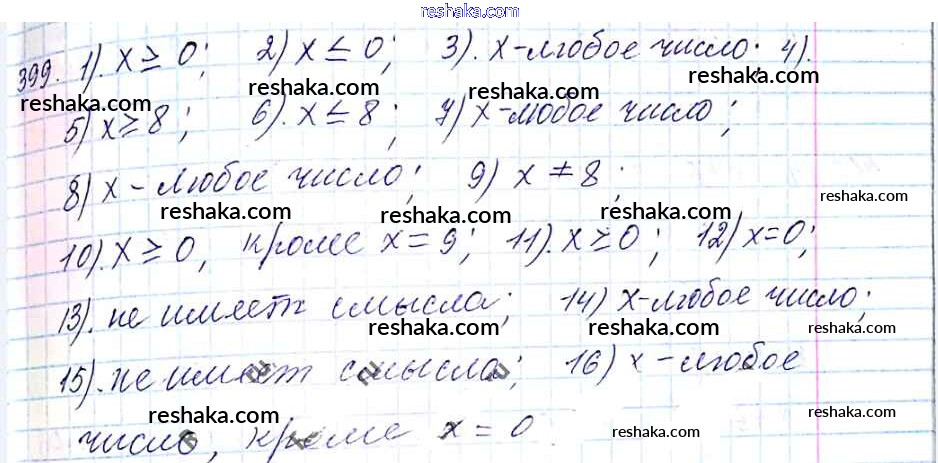 reshaka.com
399. 1). x ≥ 0; 2) x ≤ 0; 3). x - любое число; 4).
reshaka.com reshaka.com reshaka.com reshaka.com
5) x ≥ 8; 6). x ≤ 8; 7) x - любое число;
8) x - любое число; 9) x ≠ 8;
reshaka.com reshaka.com reshaka.com reshaka.com
10). x ≥ 0, кроме x = 9; 11). x ≥ 0; 12) x = 0;
13). не имеет смысла; 14) x - любое число;
reshaka.com reshaka.com reshaka.com
15). не имеет смысла; 16) x - любое
число, кроме x = 0
reshaka.com reshaka.com